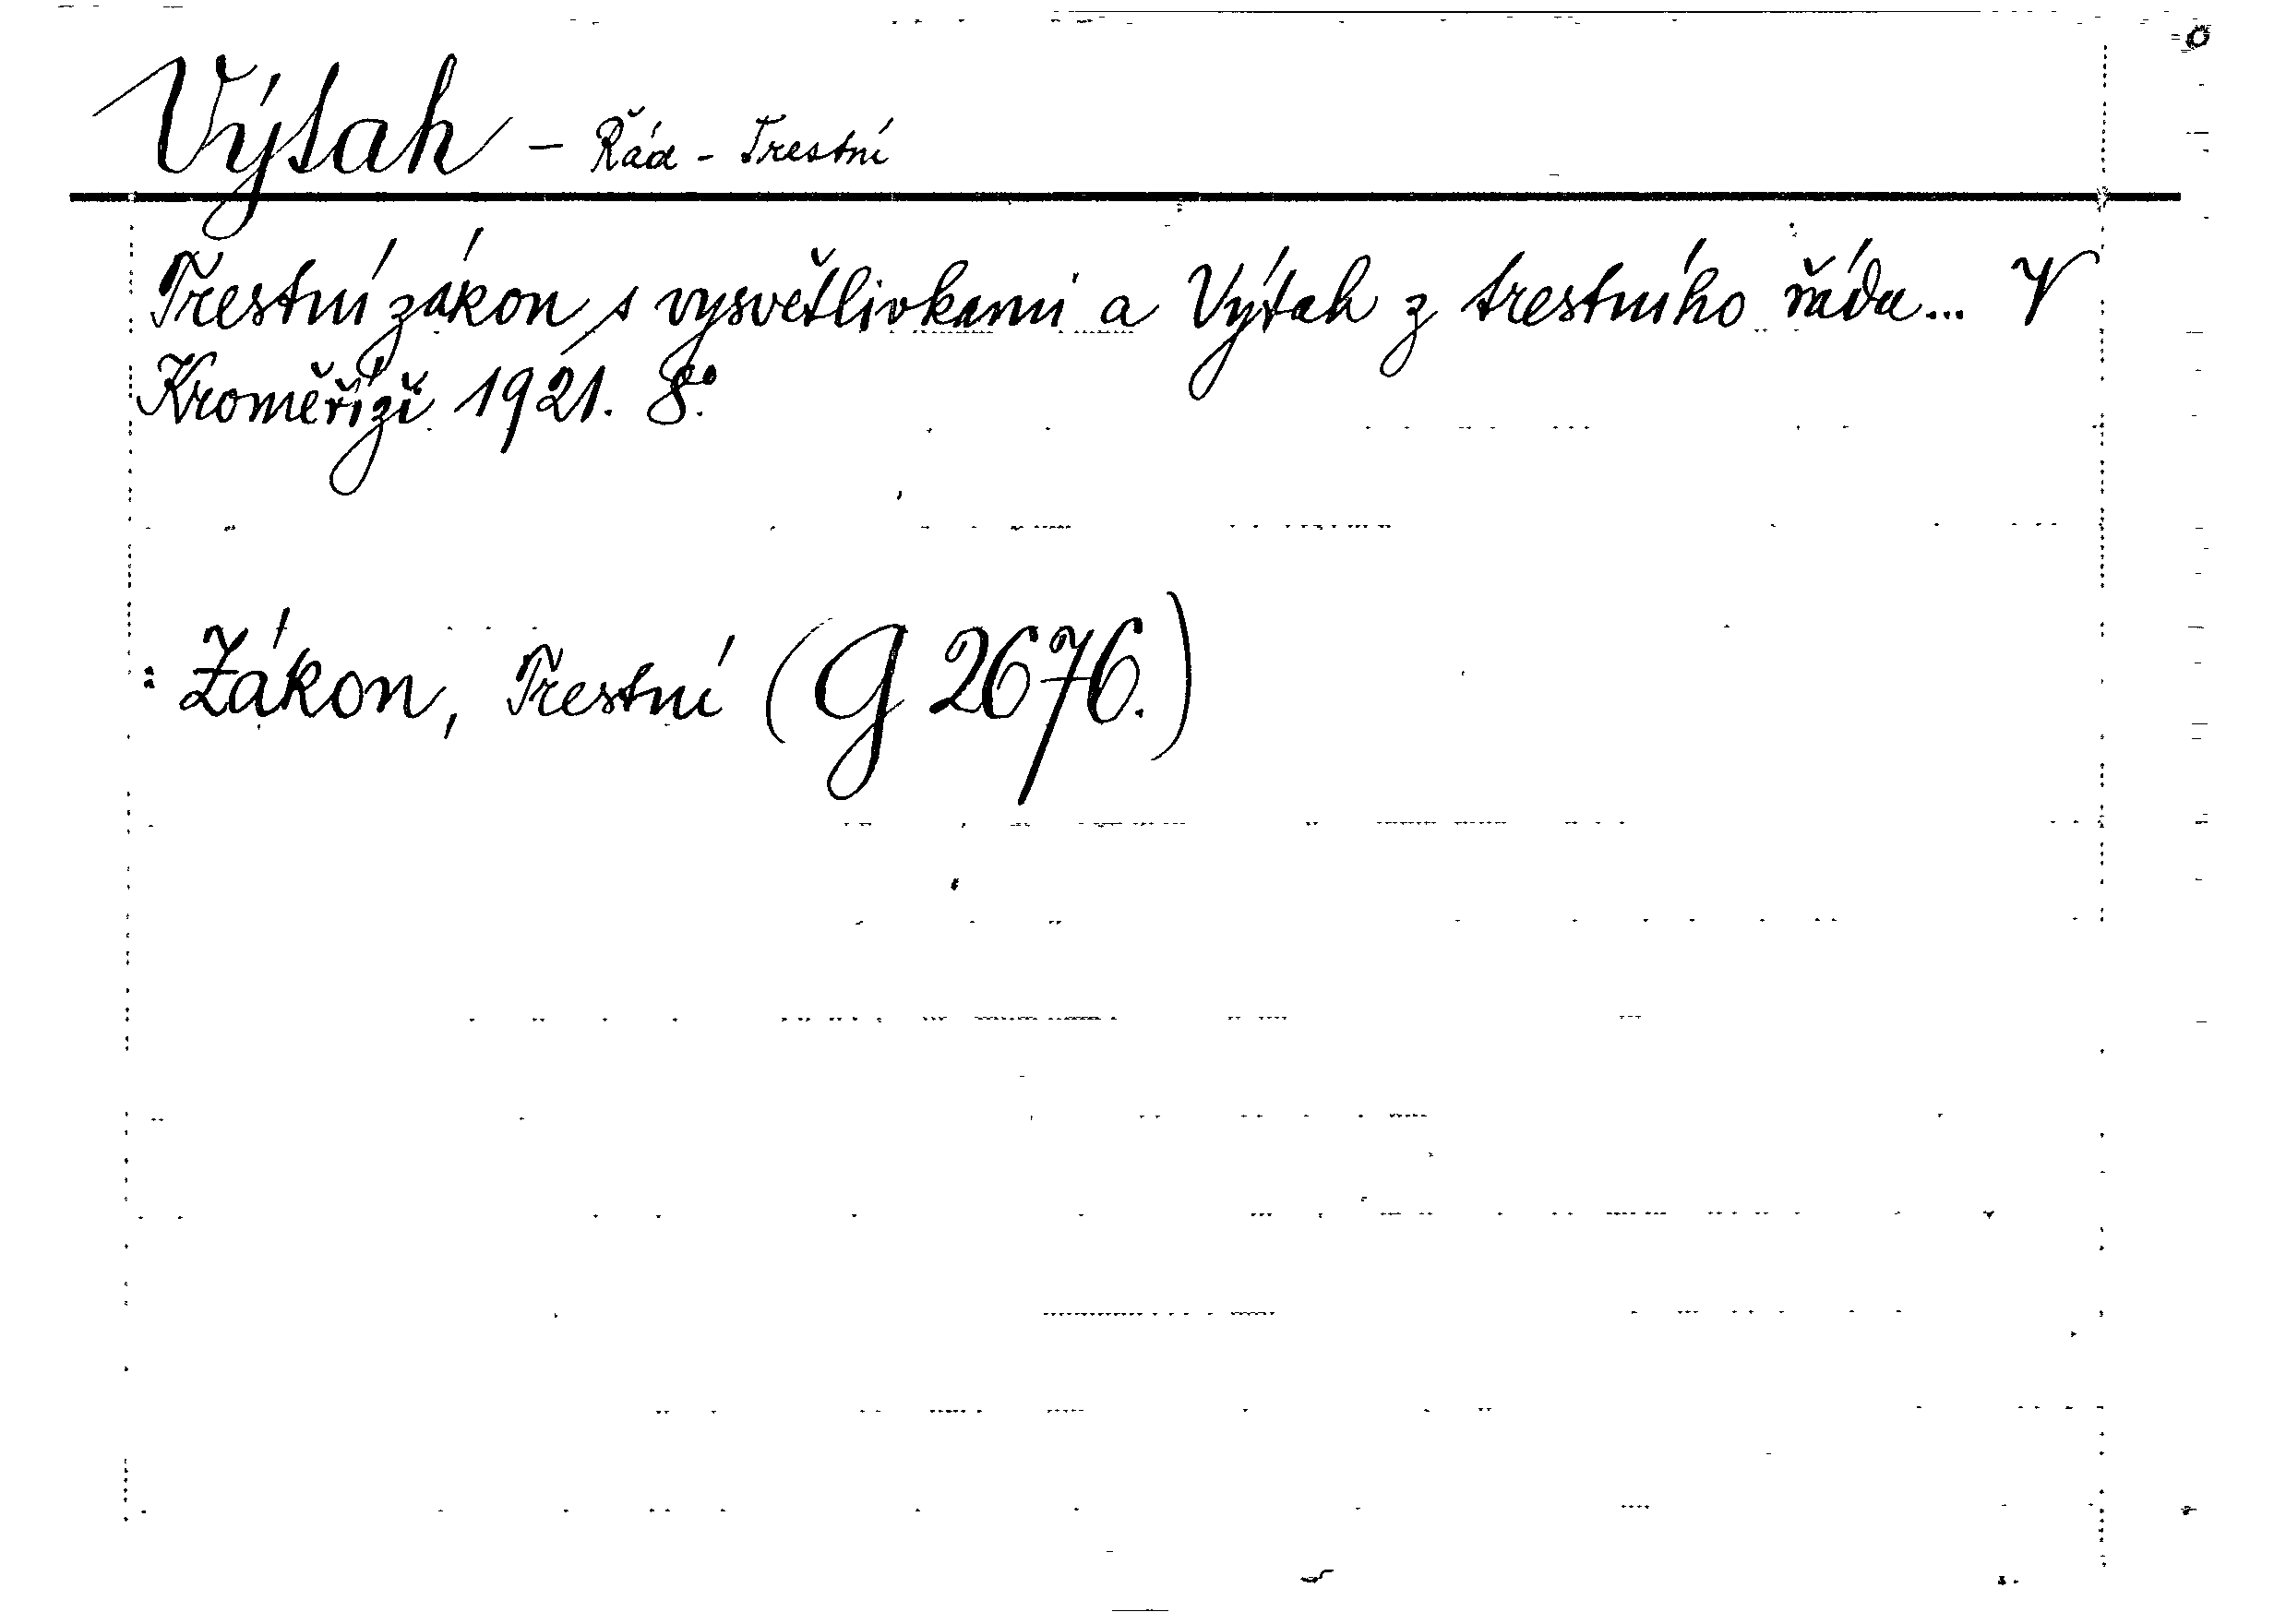 Výtah - Řád - Trestní
Trestní zákon s vysvětlivkami a Výtah z trestního řádu... V
Kroměříži 1921. 8°.
: Zákon, Trestní (G 2676.)